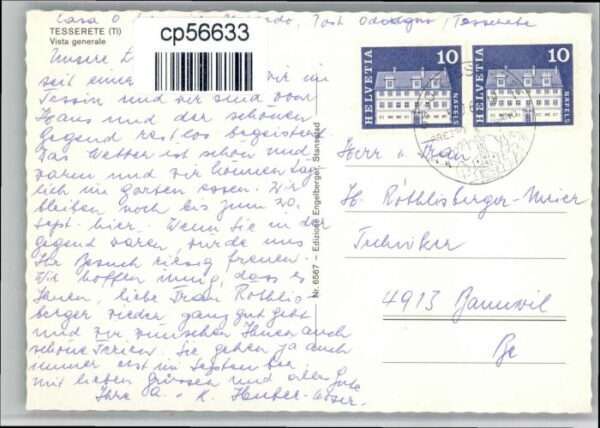 Casa O
Post Odogno / Tesserete
TESSERETE (TI)
Vista generale
cp56633
Unsere
seit einer wir im
Tessin und wir sind vom
Haus und der schönen
Gegend restlos begeistert.
Das Wetter ist schön und
warm und wir können täg-
lich im Garten essen. Wir
bleiben noch bis zum 20.
Sept. hier. Wenn Sie in der
Gegend wären, würde uns
Ihr Besuch riesig freuen.
Wir hoffen innig, dass es
Ihnen, liebe Frau Röthlis-
berger wieder ganz gut geht
und wir wünschen Ihnen auch
schöne Ferien. Sie gehen ja auch
immer erst im September
mit lieben Grüssen und alles Gute
Ihre A. + K.
Nr. 6567 – Edizione Engelberger, Stansstad
HELVETIA 10 NÄFELS
HELVETIA 10 NÄFELS
Herr u Frau
H. Röthlisberger-Meier
Techniker
4913 Bannwil
Be